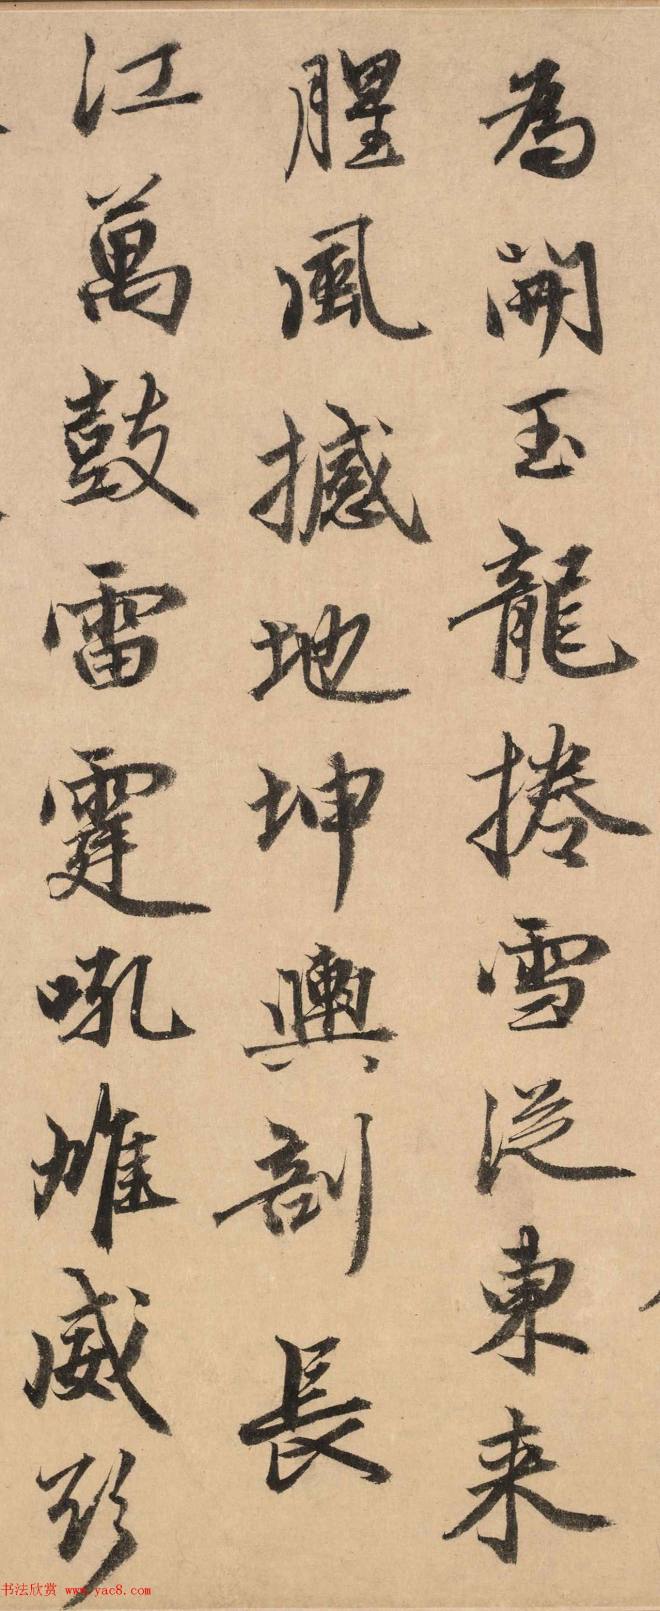 為開玉龍捲雪從東来
腥風撼地坤輿剖長
江萬鼓雷霆吼雄威欲
书法欣赏 www.yac8.com